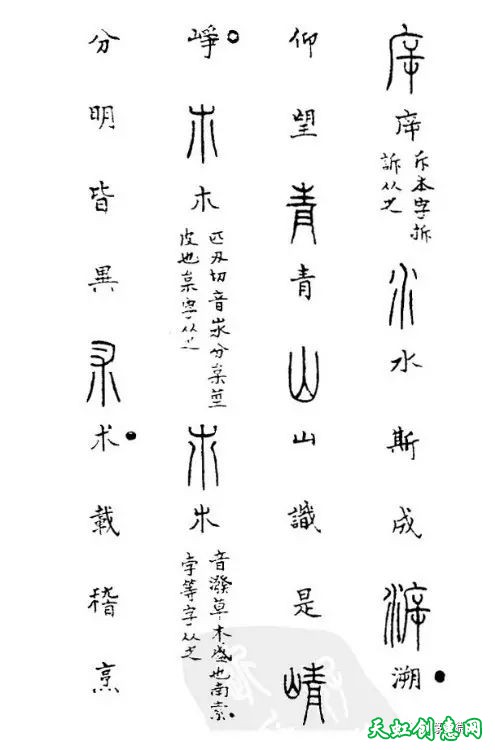 㡿㡿斥本字拆訴从之水水斯成㴑溯
仰望青青山山識是崝
崢𣎳𣎳匹刃切音分枲莖皮也枲字从之𣎵𣎵音潑草木盛也南索孛等字从之
分明皆異朮术載稽烹
天虹创意网